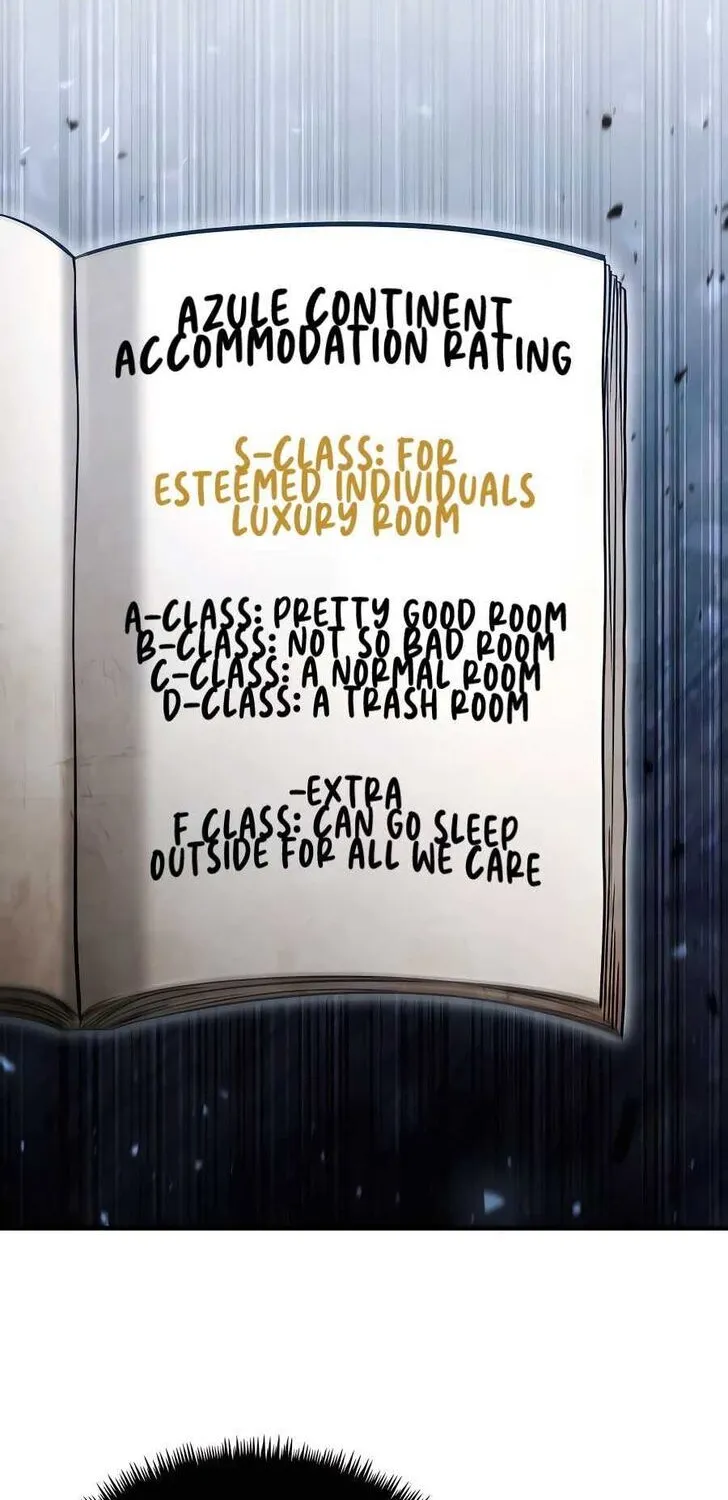 AZULE CONTINENT
ACCOMMODATION RATING
S-CLASS: FOR
ESTEEMED INDIVIDUALS
LUXURY ROOM
A-CLASS: PRETTY GOOD ROOM
B-CLASS: NOT SO BAD ROOM
C-CLASS: A NORMAL ROOM
D-CLASS: A TRASH ROOM
-EXTRA
F CLASS: CAN GO SLEEP
OUTSIDE FOR ALL WE CARE